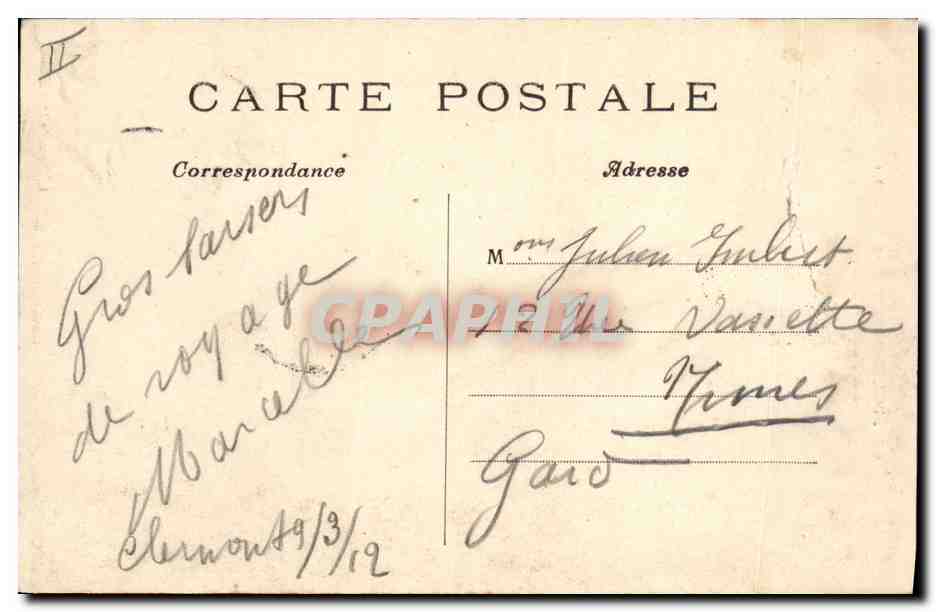 II
CARTE POSTALE
Correspondance
Gros baisers
de voyage
Marcelle
Clermont 9/3/12
Adresse
Mons Julien Imbert
12 Rue
Nimes
Gard
CPAPHIL